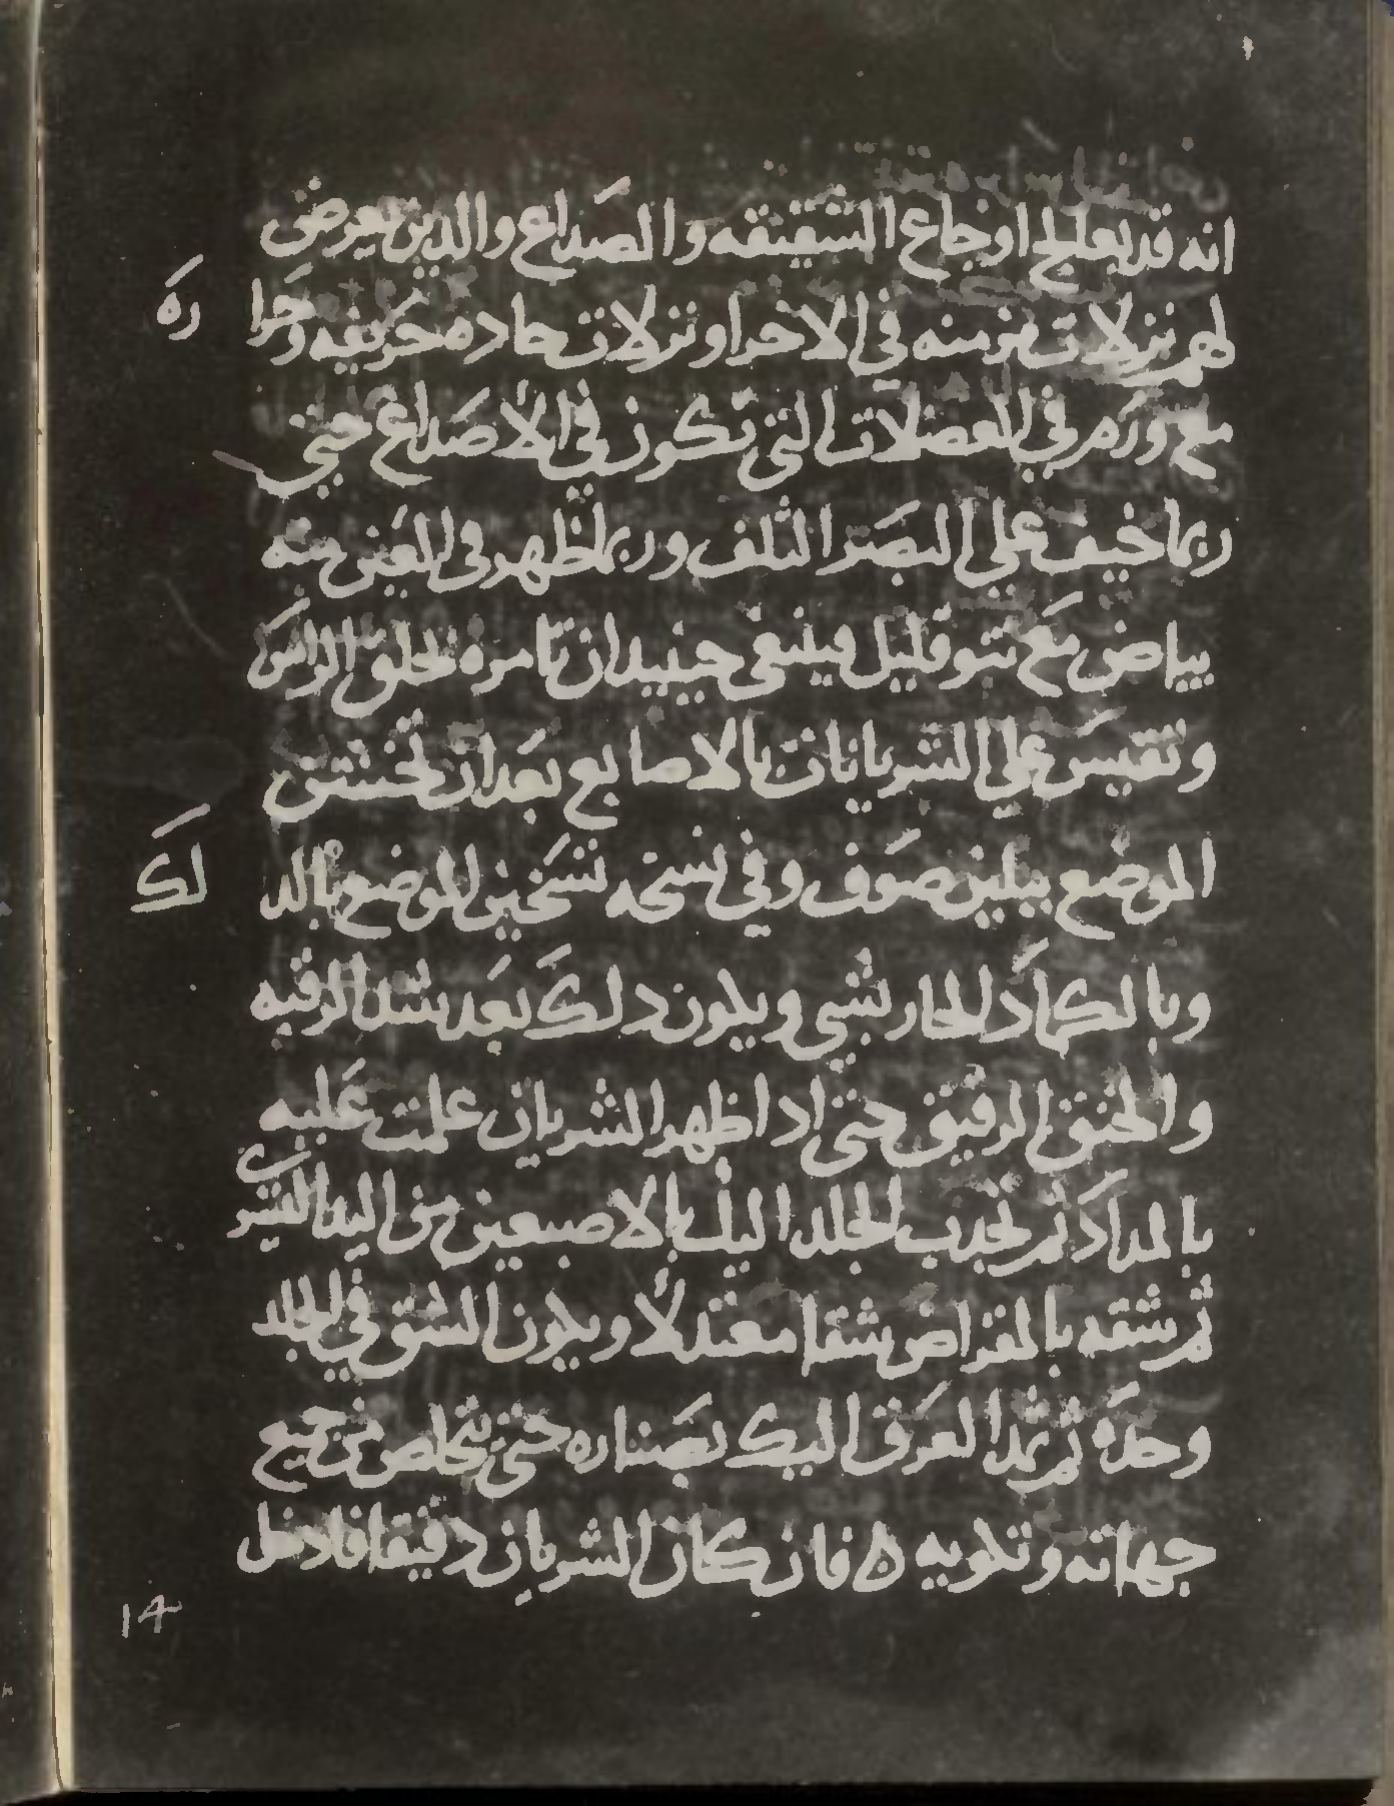 انه قد يعالج اوجاع الشقيقه والصداع والدين يعرض
لهم نزلات مزمنه في الاخر او نزلات حاده حريفه وحرا
ره
مع ورم في العضلات التي تكون في الأصداغ حتى
ربما خيف على البصر التلف وربما ظهر في العين منه
بياض مع نتو قليل فينبغي حينيد ان تامره بحلق الراس
وتفتيس على الشريانات بالاصابع بعد ان تخشن
الموضع بيلين صوف وفي نسخه تسخين الموضع بالد
لك
وبالكماد الحار بشي ويكون دلك بعد شد الرقبه
والخنق الرقيق حتى ادا ظهر الشريان علمت عليه
بالمداد ثم تجدب الجلد اليك بالاصبعين من اليد اليسرى
ثم شقه بالمقراض شقا معتدلأ ويكون الشق في الجلد
وحده ثم تمد العرق اليك بصناره حتى يتخلص من جميع
جهاته وتلويه ه فان كان الشريان دقيقا فادخل
١٤